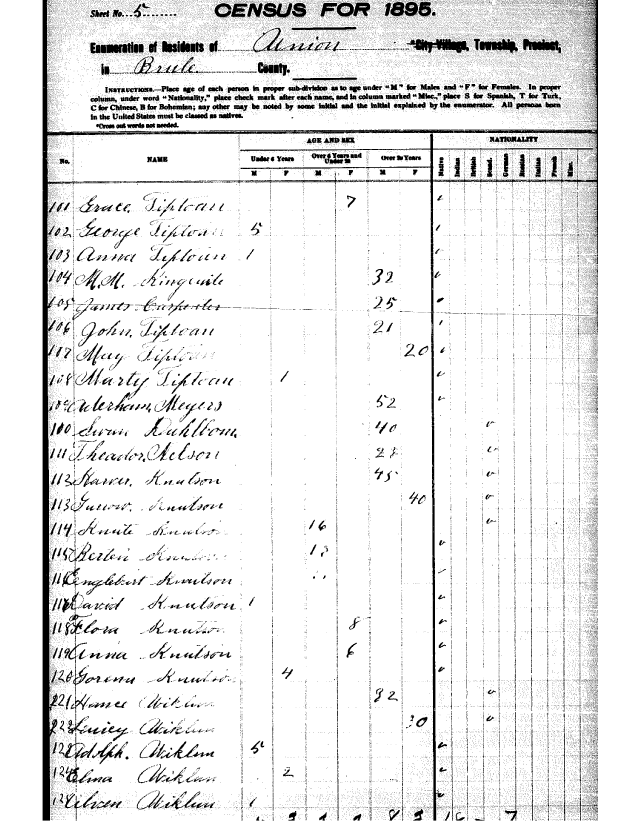 Sheet No. 5
CENSUS FOR 1895.
Enumeration of Residents of Union City Village, Township, Precinct,
in Brule County.
INSTRUCTIONS.—Place age of each person in proper sub-division as to age under "M" for Males and "F" for Females. In proper
column, under word "Nationality," place check mark after each name, and in column marked "Misc.," place S for Spanish, T for Turk,
C for Chinese, B for Bohemian; any other may be noted by some initial and the initial explained by the enumerator. All persons born
in the United States must be classed as natives.
*Cross out words not needed.
AGE AND SEX NATIONALITY
No. NAME Under 6 Years Over 6 Years and Under 20 Over 20 Years Native Indian British Scand. German Russian Italian French Misc.
M F M F M F
101 Grace Tiptoan 7
102 George Tiptoan 5
103 Anna Tiptoan 1
104 M.M. 32
105 James Carpenter 25
106 John Tiptoan 21
107 May Tiptoan 20
108 Marty Tiptoan 1
Meyers 52
100 Swan 40
111 Theador Nelson
112 Knutson 45
113 Knutson 40
114 Knute Knutson 16
115 Knutson
116 Englebert Knutson
David Knutson 1
118 Flora Knutson 8
119 Anna Knutson 6
120 Gorena Knutson 4
Wiklun 32
Wiklun 30
Adolph. Wiklun 5
124 Elma Wiklun 2
Wiklun 1